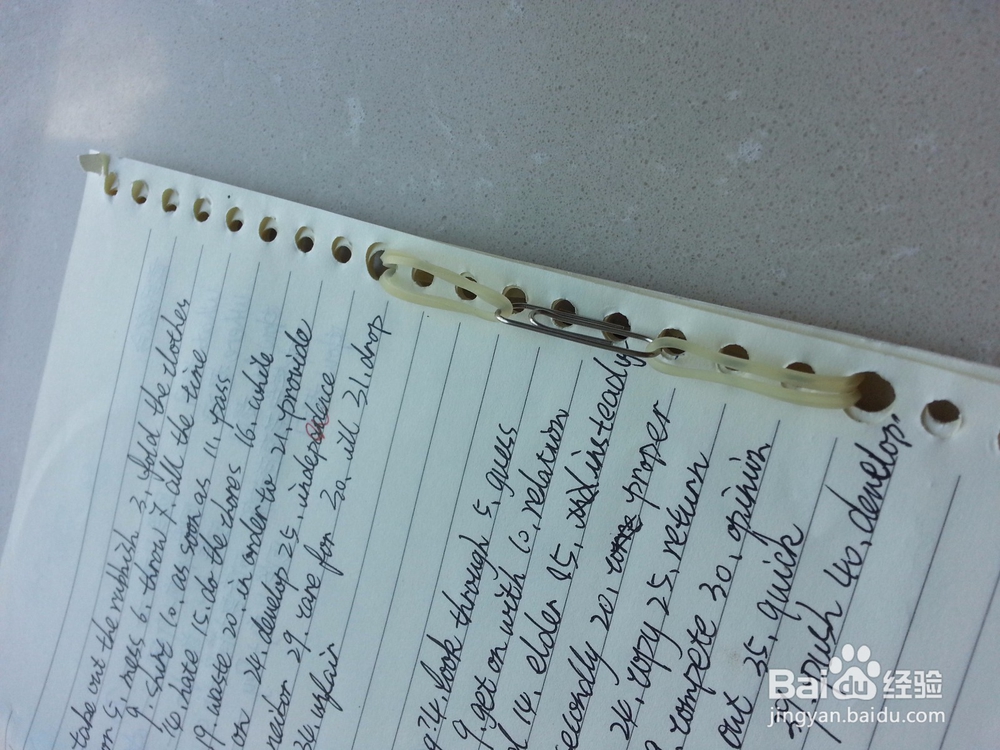 take out the rubbish 3, fold the clothes
5, mess 6, throw 7, all the time
9, shirt 10, as soon as 11, pass
14, hate 15, do the chores 16, while
19, waste 20, in order to 21, provide
on 24, develop 25, independence
neibor 29, care for 30, ill 31, drop
34, unfair
9.24, look through 5, guess
9, get on with 10, relation
14, elder 15, insteady
secondly 20, proper
24, copy 25, return
compete 30, opinion
out 35, quick
39, push 40, develop
Baidu 经验
jingyan.baidu.com